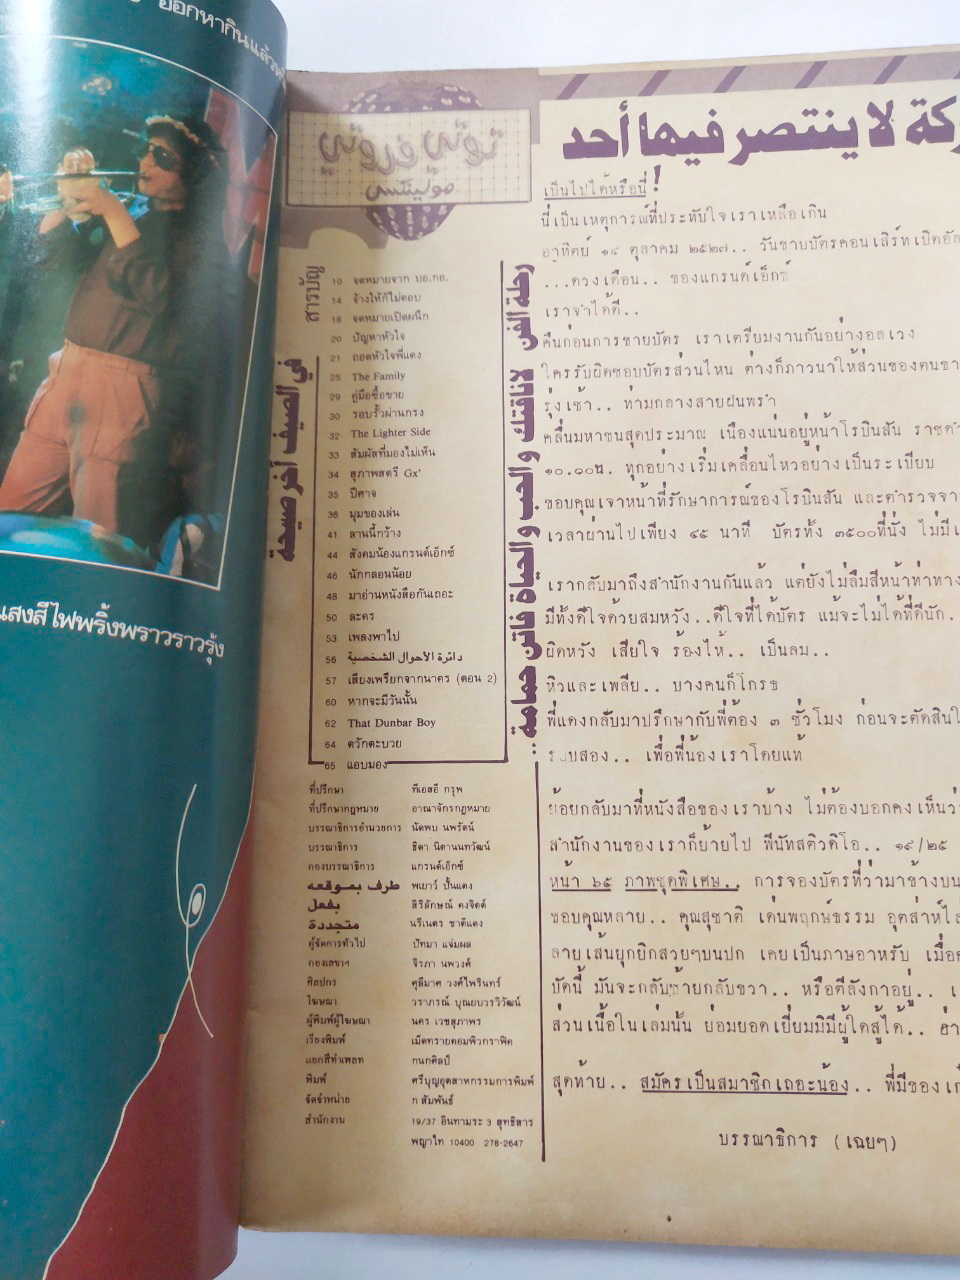 ออกหากินแล้ว
แสงสีไฟพริ้งพราวราวรุ้ง
موليتكس
ركة لا ينتصر فيها أحد
سารบัญ
في الصيف آخر صيحة
10 จดหมายจาก บอ.กอ.
14 จ้างให้ก็ไม่ตอบ
18 จดหมายเปิดผนึก
20 ปัญหาหัวใจ
21 ถอดหัวใจพี่แดง
25 The Family
29 คู่มือซื้อขาย
30 รอบรั้วผ่านกรง
32 The Lighter Side
33 สัมผัสที่มองไม่เห็น
34 สุภาพสตรี Gx'
35 ปีศาจ
36 มุมของเล่น
41 ลานนี้กว้าง
44 สังคมน้องแกรนด์เอ็กซ์
46 นักกลอนน้อย
48 มาอ่านหนังสือกันเถอะ
50 ละคร
53 เพลงพาไป
56 دائرة الأحوال الشخصية
57 เสียงเพรียกจากนาคร (ตอน 2)
60 หากจะมีวันนั้น
62 That Dunbar Boy
64 ควักตะบวย
65 แอบมอง
رحلة الفن لاناقتك و الحب و الحياة فاتن حمامة ..
ที่ปรึกษา ทีเอสอี กรุพ
ที่ปรึกษากฎหมาย อาณาจักรกฎหมาย
บรรณาธิการอำนวยการ นัดพบ นพรัตน์
บรรณาธิการ ธิดา นิตานนทวัฒน์
กองบรรณาธิการ แกรนด์เอ็กซ์
طرف بموقعه พเยาว์ ปั้นแดง
بفعل สิริลักษณ์ คงจิตต์
متجددة นรีเนตร ชาติแดง
ผู้จัดการทั่วไป ปัทมา แจ่มผล
กองเลขาฯ จิรภา นพวงค์
ศิลปกร ศุลีมาศ วงศ์ไพรินทร์
โฆษณา วราภรณ์ บุณยบวรวิวัฒน์
ผู้พิมพ์ผู้โฆษณา นคร เวชสุภาพร
เรียงพิมพ์ เม็ดทรายคอมพิวกราฟิค
แยกสีทำเพลท กนกศิลป์
พิมพ์ ศรีบุญอุตสาหกรรมการพิมพ์
จัดจำหน่าย ก สัมพันธ์
สำนักงาน 19/37 อินทามระ 3 สุทธิสาร
พญาไท 10400 278-2647
เป็นไปได้หรือนี่ !
นี่เป็นเหตุการณ์ที่ประทับใจเราเหลือเกิน
อาทิตย์ ๑๔ ตุลาคม ๒๕๒๗.. วันขายบัตรคอนเสิร์ทเปิดอัล
...ดวงเดือน.. ของแกรนด์เอ็กซ์
เราจำได้ดี..
คืนก่อนการขายบัตร เราเตรียมงานกันอย่างอลเวง
ใครรับผิดชอบบัตรส่วนไหน ต่างก็ภาวนาให้ส่วนของตนขา
รุ่งเช้า.. ท่ามกลางสายฝนพรำ
คลื่นมหาชนสุดประมาณ เนืองแน่นอยู่หน้าโรบินสัน ราชดำ
๑๐.๑๐น. ทุกอย่างเริ่มเคลื่อนไหวอย่างเป็นระเบียบ
ขอบคุณเจ้าหน้าที่รักษาการณ์ของโรบินสัน และตำรวจจา
เวลาผ่านไปเพียง ๔๕ นาที บัตรทั้ง ๓๕๐๐ที่นั่ง ไม่มีเ
เรากลับมาถึงสำนักงานกันแล้ว แต่ยังไม่ลืมสีหน้าท่าทาง
มีทั้งดีใจด้วยสมหวัง..ดีใจที่ได้บัตร แม้จะไม่ได้ที่ดีนัก.
ผิดหวัง เสียใจ ร้องไห้.. เป็นลม..
หิวและเพลีย.. บางคนก็โกรธ
พี่แดงกลับมาปรึกษากับพี่ต้อง ๓ ชั่วโมง ก่อนจะตัดสินใ
รอบสอง.. เพื่อพี่น้องเราโดยแท้
ย้อยกลับมาที่หนังสือของเราบ้าง ไม่ต้องบอกคงเห็นว่
สำนักงานของเราก็ย้ายไป พีนัทสติวดิโอ.. ๑๙/๒๕
หน้า ๖๕ ภาพชุดพิเศษ.. การจองบัตรที่ว่ามาข้างบน
ขอบคุณหลาย.. คุณสุชาติ เด่นพฤกษ์ธรรม อุตส่าห์ไ
ลายเส้นยุกยิกสวยๆบนปก เคยเป็นภาษาอาหรับ เมื่อ
บัดนี้ มันจะกลับซ้ายกลับขวา.. หรือตีลังกาอยู่.. เ
ส่วนเนื้อในเล่มนั้น ย่อมยอดเยี่ยมมิมีผู้ใดสู้ได้.. ฮ่า
สุดท้าย.. สมัครเป็นสมาชิกเถอะน้อง.. พี่มีของเก
บรรณาธิการ (เฉยๆ)